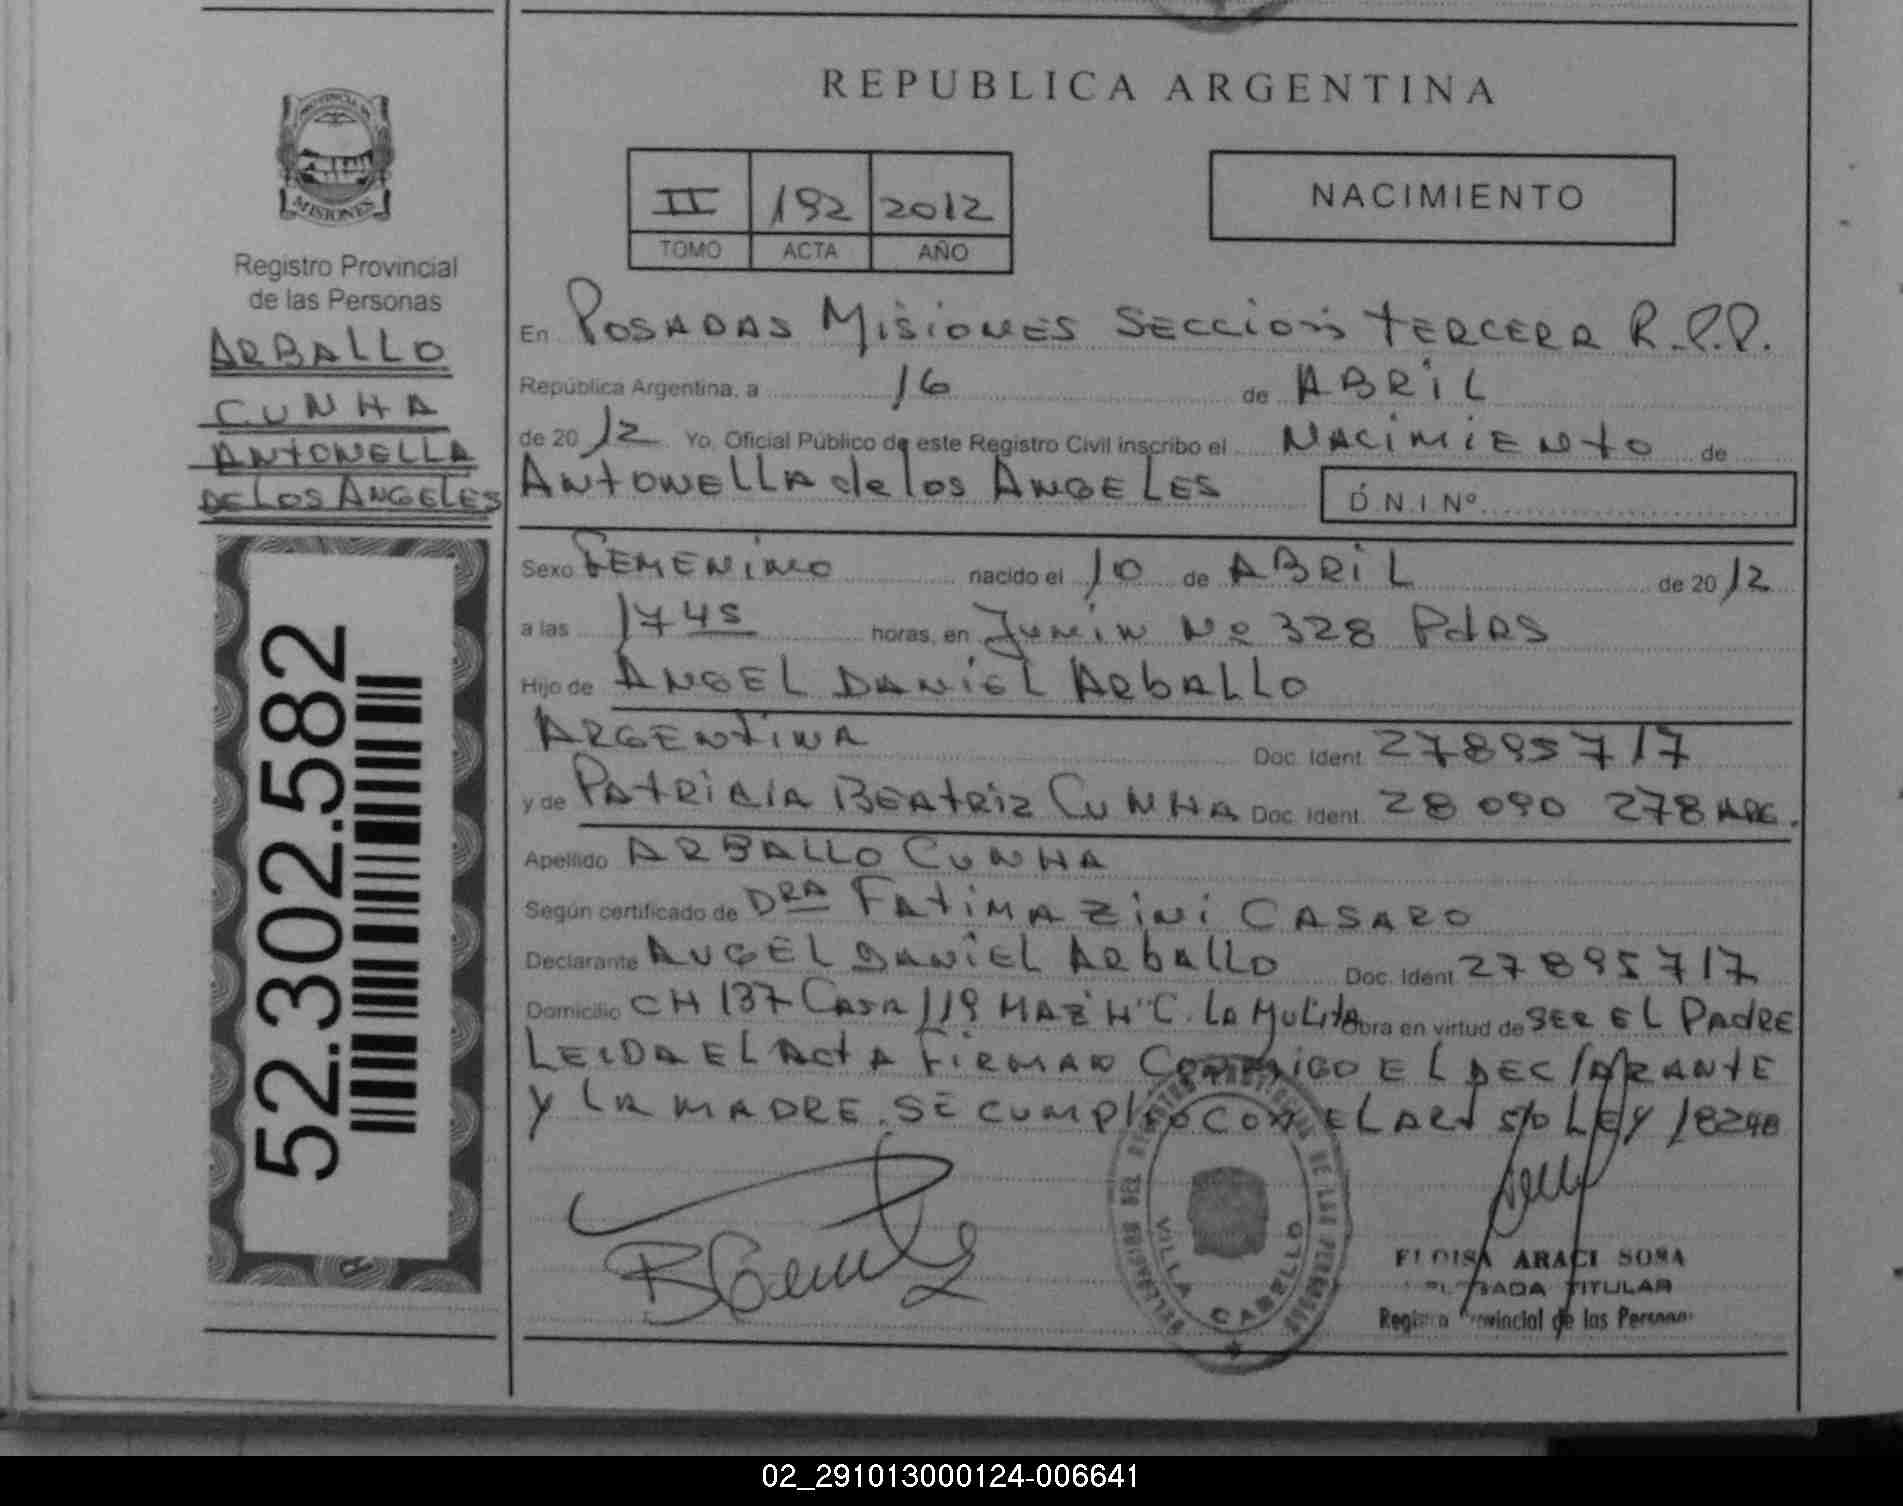 REPUBLICA ARGENTINA
PROVINCIA DE
MISIONES
Registro Provincial
de las Personas
ARBALLO
CUNHA
ANTONELLA
DE LOS ANGELES
52.302.582
II 192 2012
TOMO ACTA AÑO
NACIMIENTO
En POSADAS MISIONES SECCION TERCERA R.P.P.
República Argentina, a 16 de ABRIL
de 2012 Yo, Oficial Público de este Registro Civil inscribo el NACIMIENTO de
ANTONELLA de los ANGELES D.N.I Nº
Sexo FEMENINO nacido el 10 de ABRIL de 2012
a las 1745 horas, en JUNIN Nº 328 PdAS
Hijo de ANGEL DANIEL ARBALLO
ARGENTINA Doc. Ident. 27895717
y de PATRICIA BEATRIZ CUNHA Doc. Ident. 28 090 278 ARG.
Apellido ARBALLO CUNHA
Según certificado de DRA FATIMA ZINI CASARO
Declarante ANGEL DANIEL ARBALLO Doc. Ident. 27895717
Domicilio CH 137 CASA 119 MAZ "H" C. LA MULITA Obra en virtud de SER EL PADRE
LEIDA EL ACTA FIRMAN CONMIGO EL DECLARANTE
Y LA MADRE. SE CUMPLIO CON EL ART 5/0 LEY 18248
VILLA CABELLO
ELOISA ARACI SOSA
TITULAR
Registro Provincial de las Personas
02_291013000124-006641